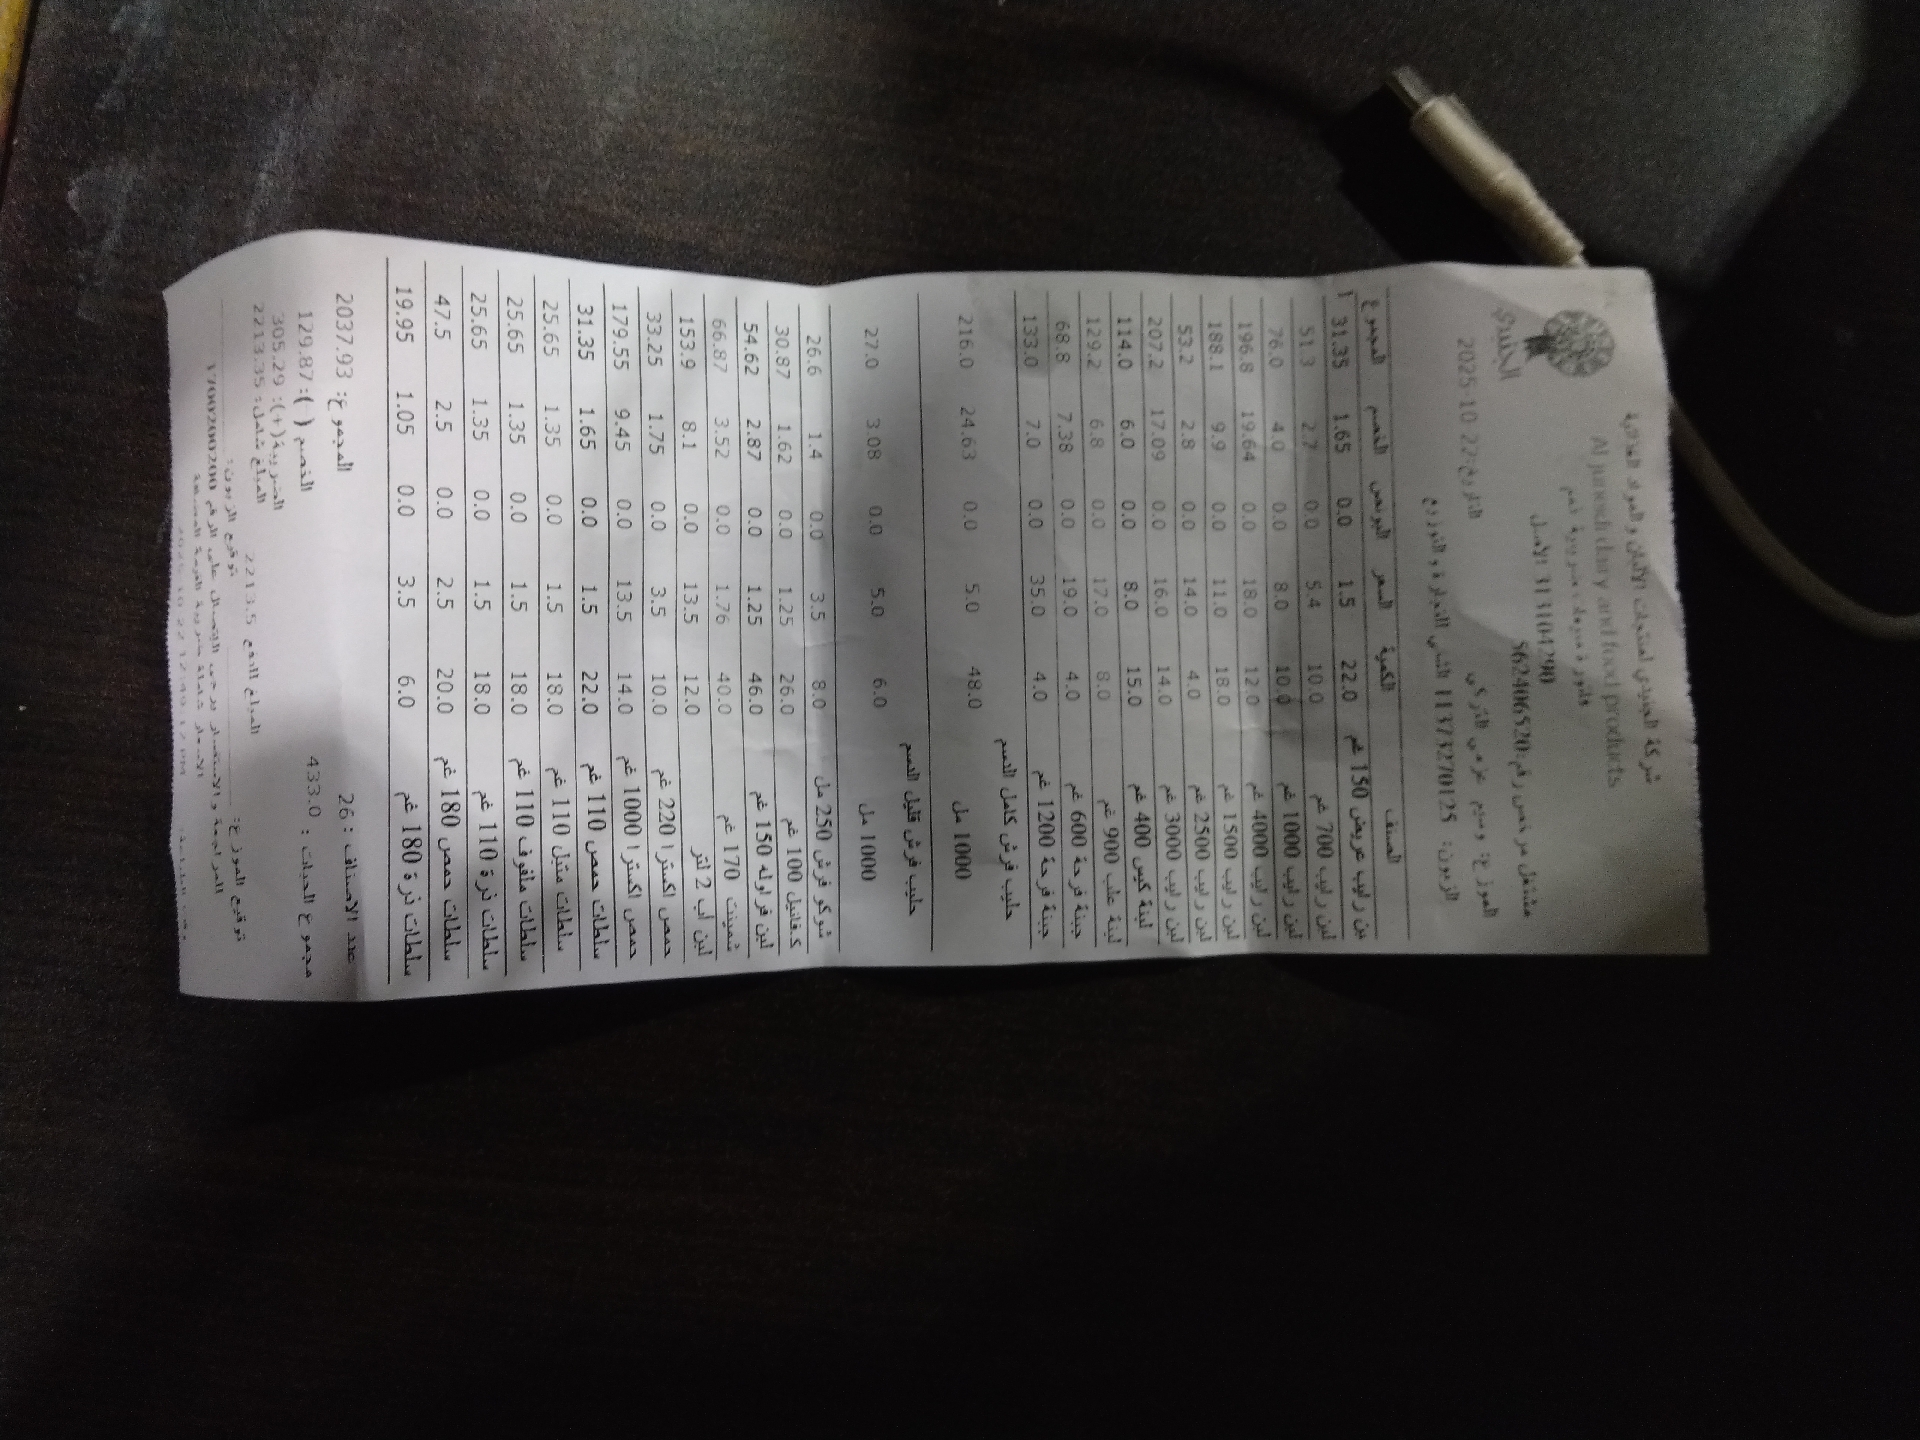 شركة الجنيدي لمنتجات الألبان والمواد الغذائية
Al juneidi dairy and food products
فاتورة مبيعات ضريبية رقم
313104290 الاصل
مشتغل مرخص رقم:562406520
الجنيدي
التاريخ:22-10-2025
الموزع: وسيم عزمي التركي
الزبون: 11373270125 الثاني للتجارة والتوزيع
الصنف الكمية السعر البونص الخصم المجموع
لبن رايب عريض 150 غم 22.0 1.5 0.0 1.65 31.35
لبن رايب 700 غم 10.0 5.4 0.0 2.7 51.3
لبن رايب 1000 غم 10.0 8.0 0.0 4.0 76.0
لبن رايب 4000 غم 12.0 18.0 0.0 19.64 196.8
لبن رايب 1500 غم 18.0 11.0 0.0 9.9 188.1
لبن رايب 2500 غم 4.0 14.0 0.0 2.8 53.2
لبن رايب 3000 غم 14.0 16.0 0.0 17.09 207.2
لبنة كيس 400 غم 15.0 8.0 0.0 6.0 114.0
لبنة علب 900 غم 8.0 17.0 0.0 6.8 129.2
جبنة فرحة 600 غم 4.0 19.0 0.0 7.38 68.8
جبنة فرحة 1200 غم 4.0 35.0 0.0 7.0 133.0
حليب فرش كامل الدسم
1000 مل 48.0 5.0 0.0 24.63 216.0
حليب فرش قليل الدسم
1000 مل 6.0 5.0 0.0 3.08 27.0
شوكو فرش 250 مل 8.0 3.5 0.0 1.4 26.6
ك.فانيل 100 غم 26.0 1.25 0.0 1.62 30.87
لبن فراوله 150 غم 46.0 1.25 0.0 2.87 54.62
شمينت 170 غم 40.0 1.76 0.0 3.52 66.87
لبن اب 2 لتر 12.0 13.5 0.0 8.1 153.9
حمص اكسترا 220 غم 10.0 3.5 0.0 1.75 33.25
حمص اكسترا 1000 غم 14.0 13.5 0.0 9.45 179.55
سلطات حمص 110 غم 22.0 1.5 0.0 1.65 31.35
سلطات متبل 110 غم 18.0 1.5 0.0 1.35 25.65
سلطات ملفوف 110 غم 18.0 1.5 0.0 1.35 25.65
سلطات ذرة 110 غم 18.0 1.5 0.0 1.35 25.65
سلطات حمص 180 غم 20.0 2.5 0.0 2.5 47.5
سلطات ذرة 180 غم 6.0 3.5 0.0 1.05 19.95
عدد الاصناف : 26 المجموع: 2037.93
مجموع الحبات : 433.0 الخصم (-): 129.87
الضريبة(+): 305.29
المبلغ شامل: 2213.35
المبلغ الدفع 2213.5
توقيع الموزع: توقيع الزبون:
للمراجعة والاستفسار يرجى الاتصال على الرقم 1700200200
الاسعار شاملة ضريبة القيمة المضافة